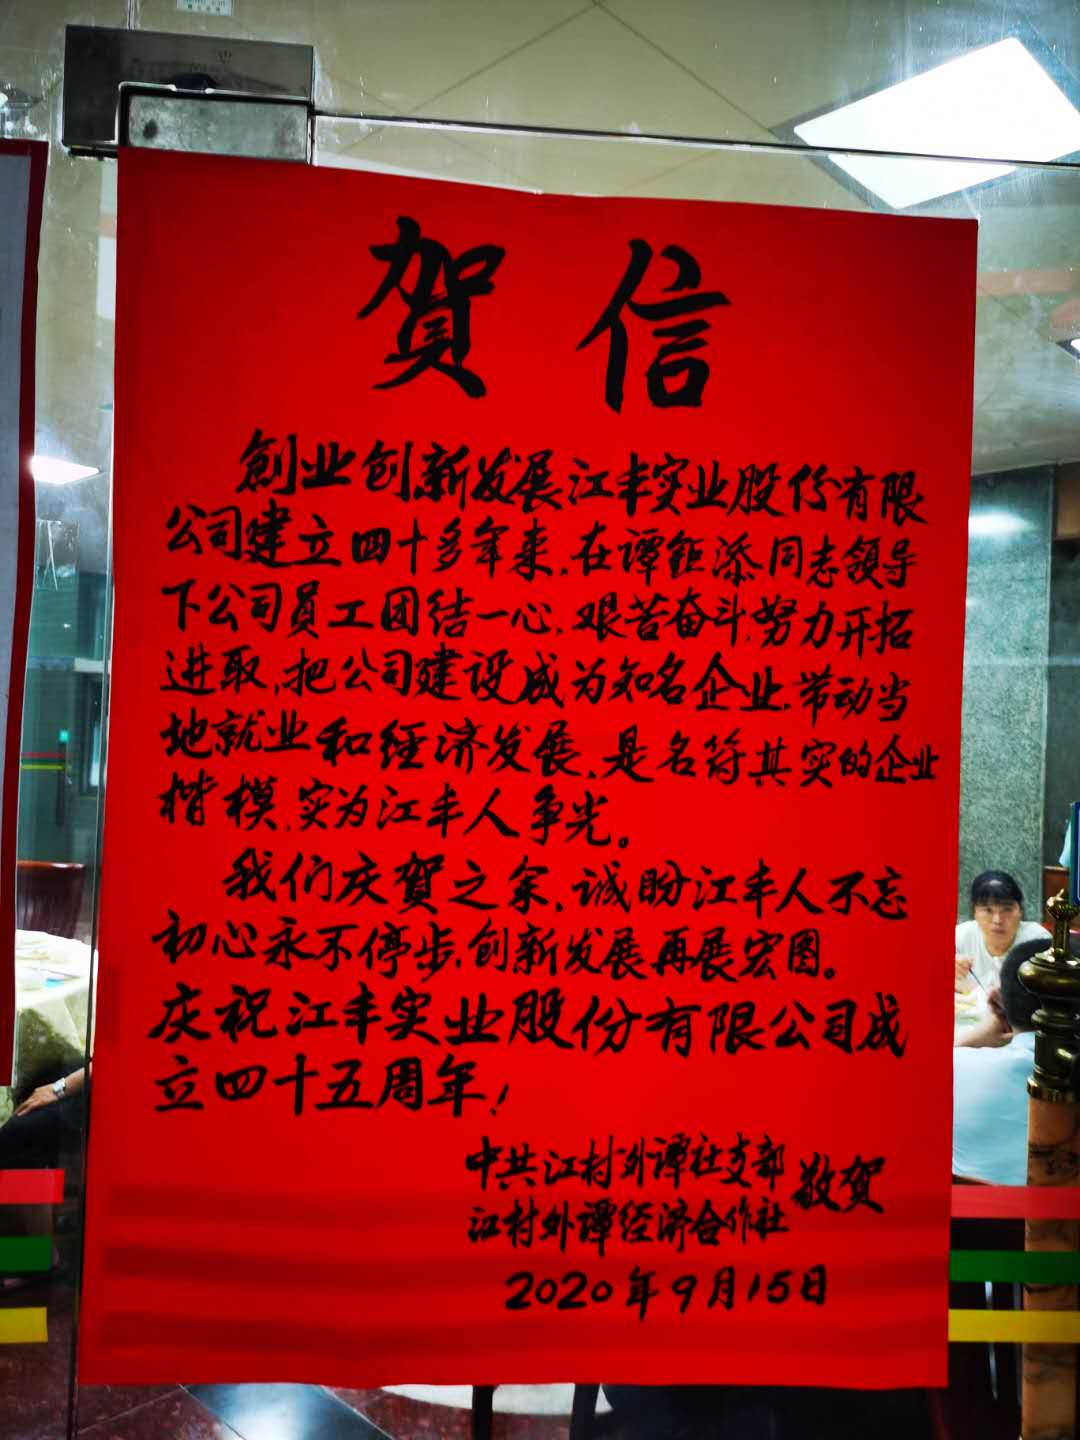 贺信
創业创新发展江丰实业股份有限
公司建立四十多年来,在谭钜添同志领导
下公司员工团结一心,艰苦奋斗,努力开拓
进取,把公司建设成为知名企业,带动当
地就业和经济发展,是名符其实的企业
楷模,实为江丰人争光。
我们庆贺之余,诚盼江丰人不忘
初心永不停步,创新发展再展宏图。
庆祝江丰实业股份有限公司成
立四十五周年!
中共江村外谭社支部
江村外谭经济合作社
敬贺
2020年9月15日